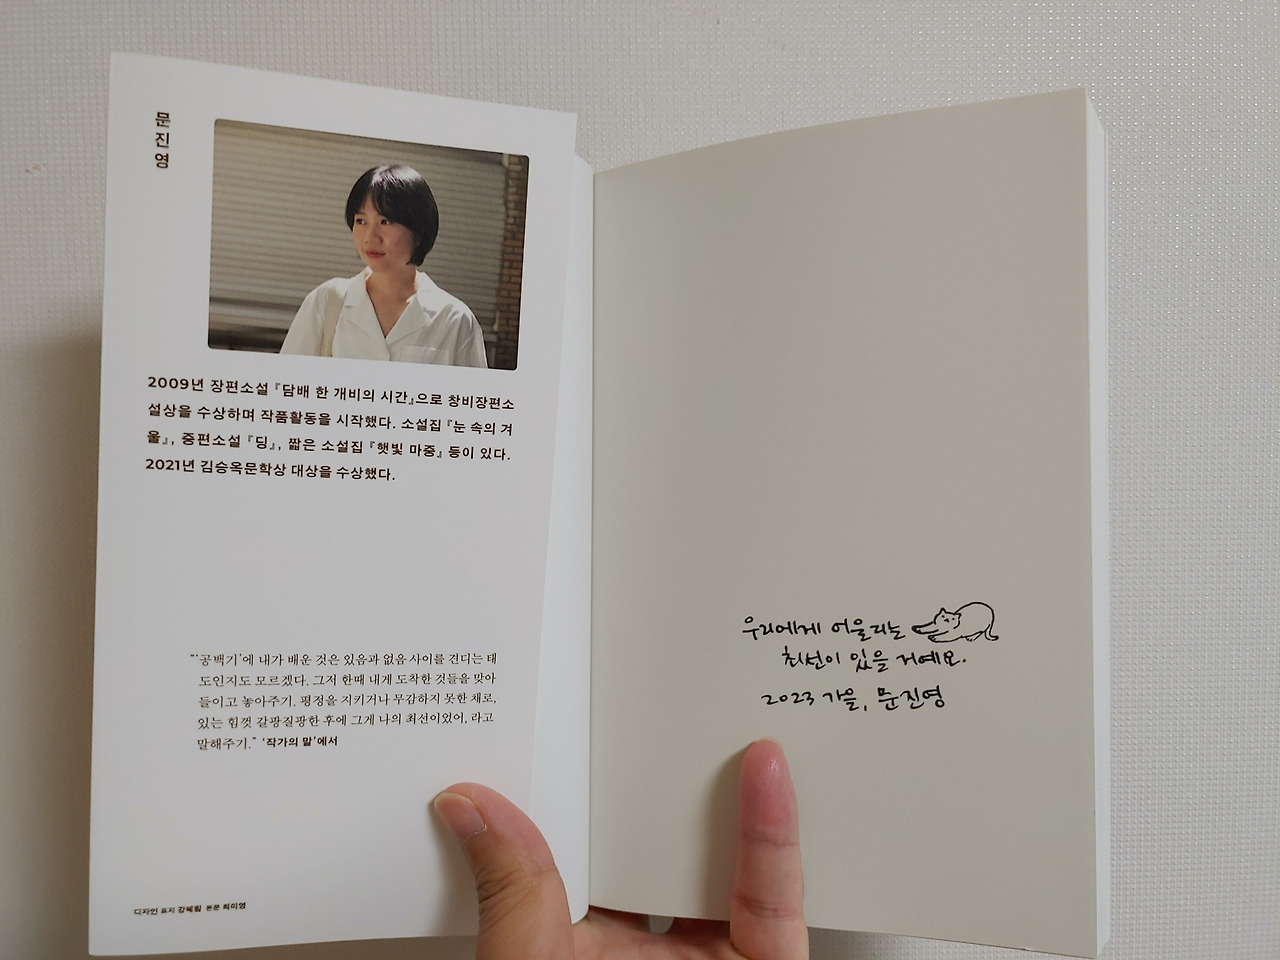 문진영
2009년 장편소설 『담배 한 개비의 시간』으로 창비장편소
설상을 수상하며 작품활동을 시작했다. 소설집 『눈 속의 겨
울』, 중편소설 『딩』, 짧은 소설집 『햇빛 마중』 등이 있다.
2021년 김승옥문학상 대상을 수상했다.
“‘공백기’에 내가 배운 것은 있음과 없음 사이를 견디는 태
도인지도 모르겠다. 그저 한때 내게 도착한 것들을 맞아
들이고 놓아주기. 평정을 지키거나 무감하지 못한 채로,
있는 힘껏 갈팡질팡한 후에 그게 나의 최선이었어, 라고
말해주기.” ‘작가의 말’에서
디자인 표지 강혜림 본문 최미영
우리에게 어울리는
최선이 있을 거예요.
2023 가을, 문진영